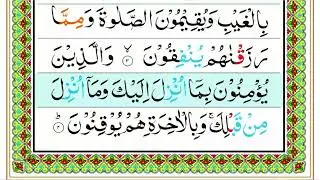 بِالْغَيْبِ وَيُقِيْمُوْنَ الصَّلٰوةَ وَمِمَّا
رَزَقْنٰهُمْ يُنْفِقُوْنَ ۙ﴿۳﴾ وَالَّذِيْنَ
يُؤْمِنُوْنَ بِمَاۤ اُنْزِلَ اِلَيْكَ وَمَاۤ اُنْزِلَ
مِنْ قَبْلِكَ ۚ وَبِالْاٰخِرَةِ هُمْ يُوْقِنُوْنَ ؕ﴿۴﴾